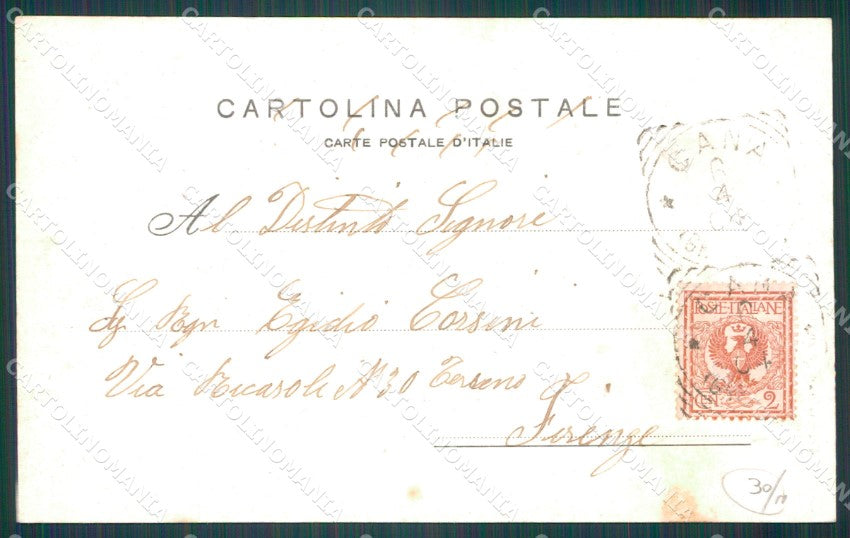 CARTOLINA POSTALE
CARTE POSTALE D'ITALIE
Al Distinto Signore
Sg Egidio Corsini
Via Ricasoli N 30 Terreno
Firenze
POSTE ITALIANE
CENT 2
30/
CARTOLINOMANIA